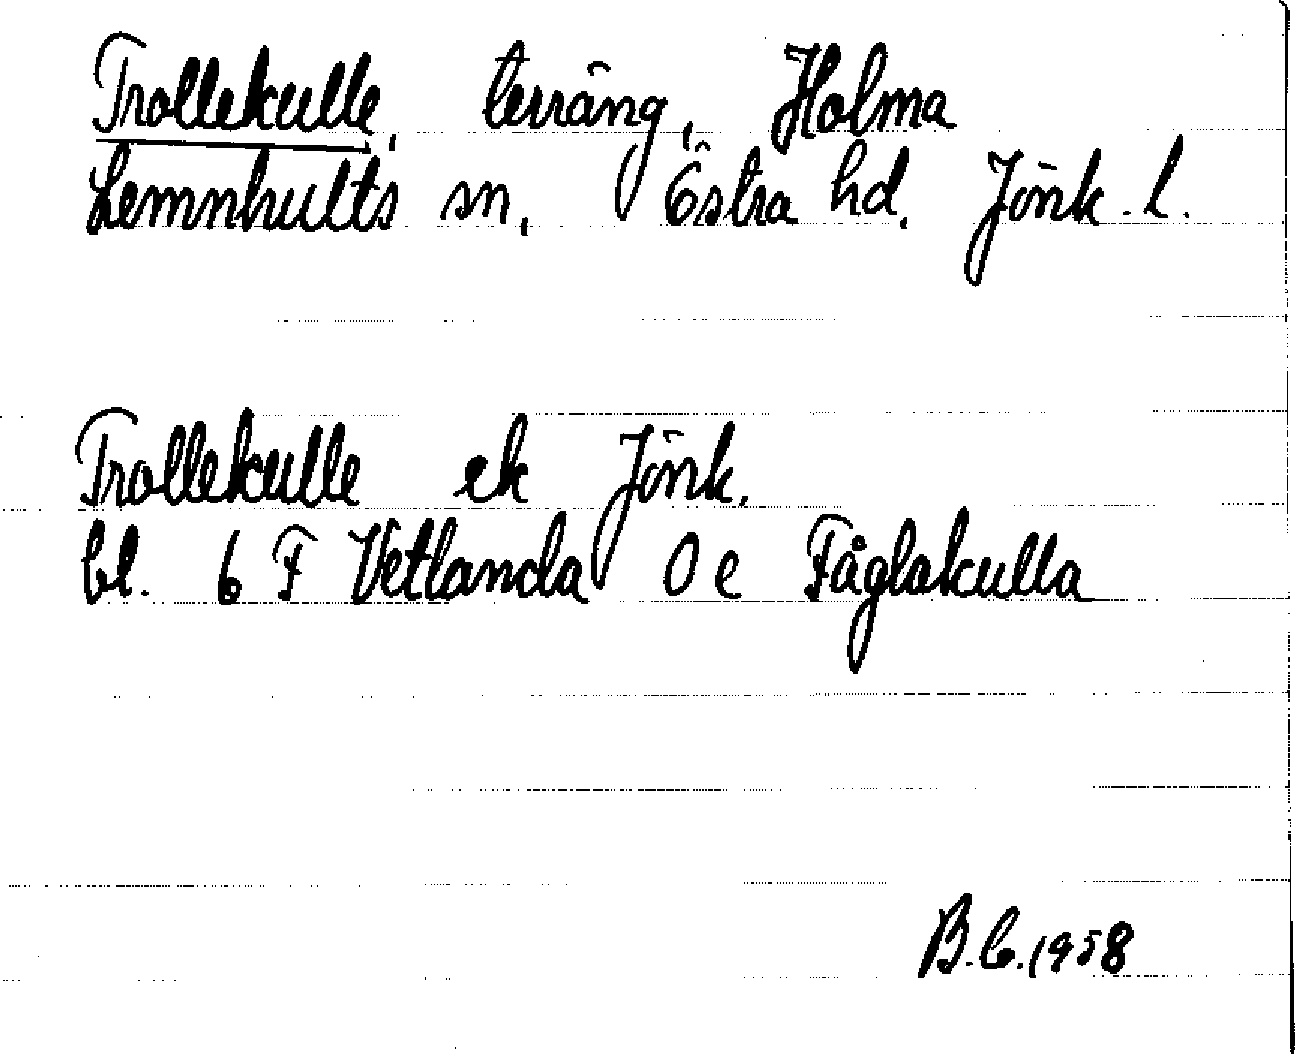 Trollekulle, terräng, Holma
Lemnhults sn, Östra hd. Jönk. l.
Trollekulle ek Jönk.
bl. 6 F Vetlanda 0 e Fåglakulla
B.C. 1958